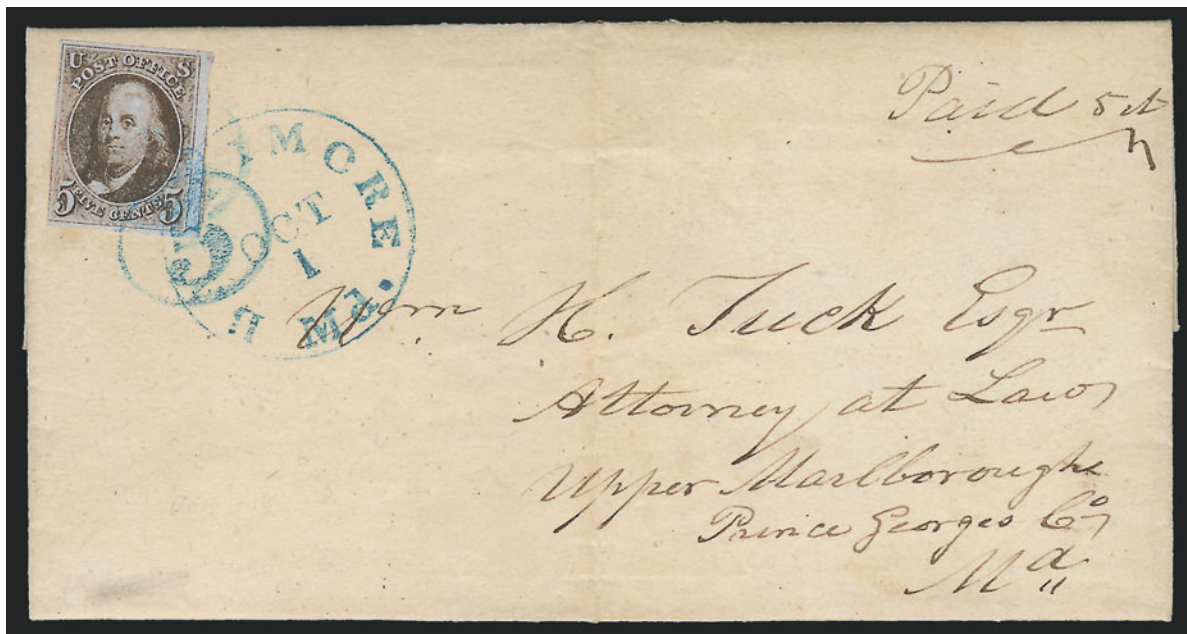 U S
POST OFFICE
5 FIVE CENTS 5
Paid 5 ct
BALTIMORE Md.
OCT
1
5
Wm H. Tuck Esqr
Attorney at Law
Upper Marlborough
Prince Georges Co
Md